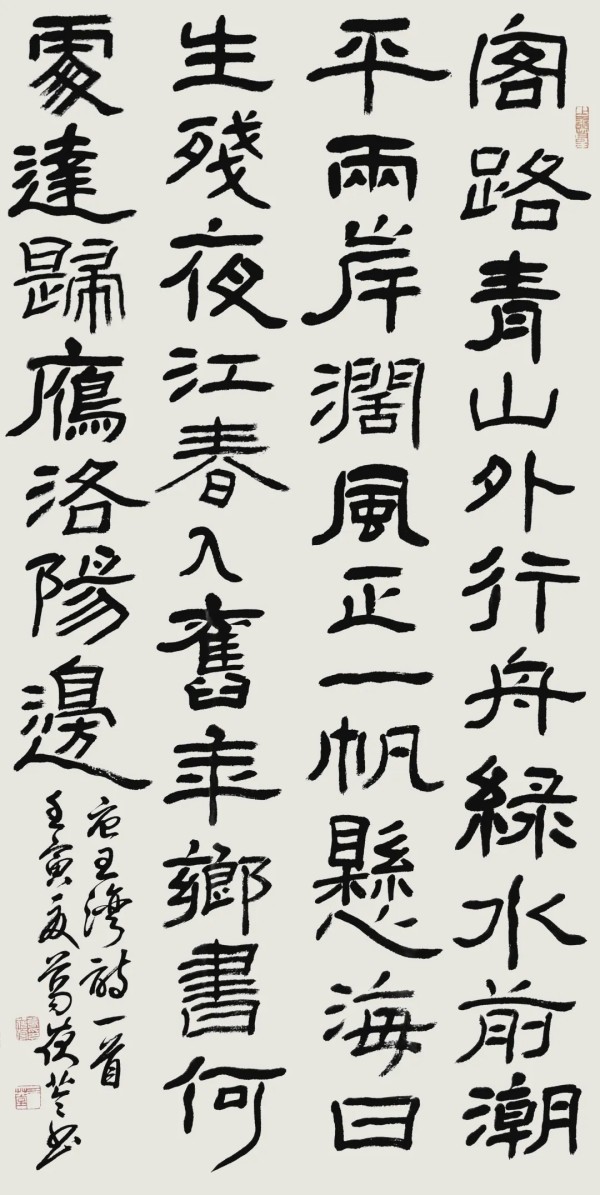 客路青山外行舟綠水前潮
平兩岸濶風正一帆懸海日
生殘夜江春入舊年鄉書何
處達歸鴈洛陽邊
唐王灣詩一首
壬寅夏葛茯苓书